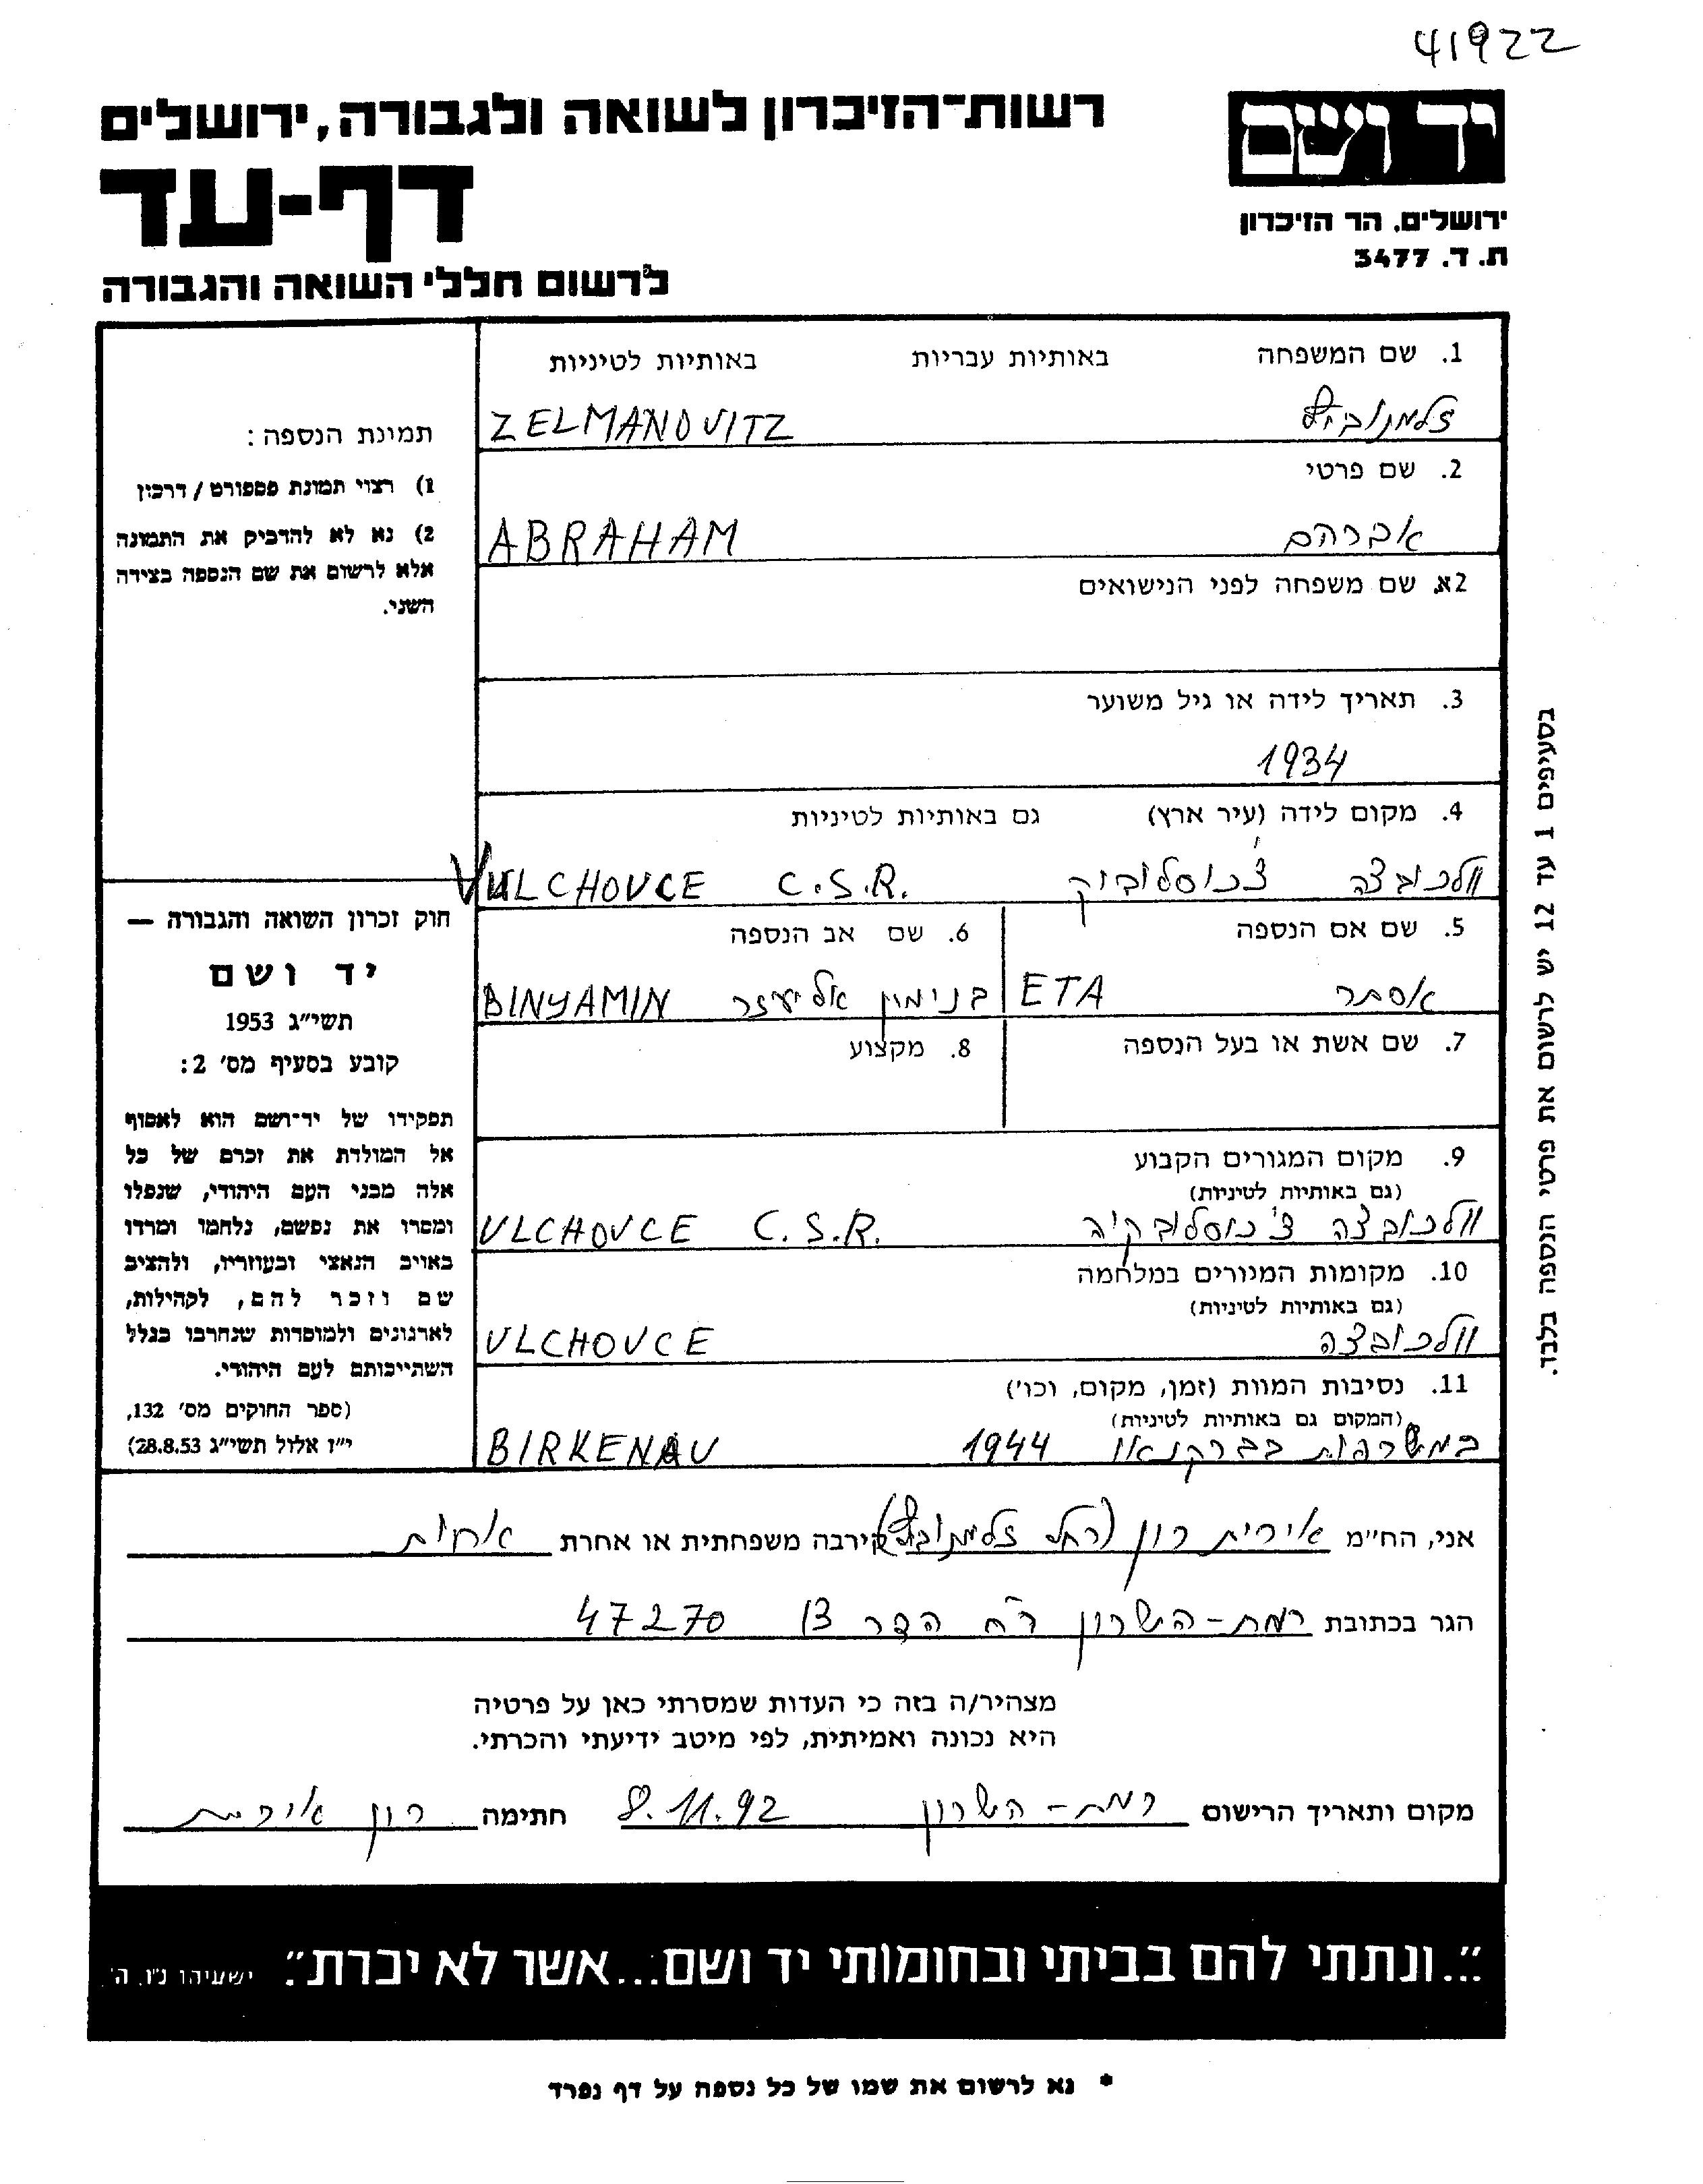 41922
יד ושם
ירושלים. הר הזיכרון
ת. ד. 3477
רשות־הזיכרון לשואה ולגבורה, ירושלים
דף-עד
לרשום חללי השואה והגבורה
1. שם המשפחה באותיות עבריות באותיות לטיניות
זלמנוביץ ZELMANOVITZ
2. שם פרטי
אברהם ABRAHAM
2א. שם משפחה לפני הנישואים
3. תאריך לידה או גיל משוער
1934
4. מקום לידה (עיר ארץ) גם באותיות לטיניות
וולכובצה VULCHOVCE C.S.R.
5. שם אם הנספה
אסתר ETA
6. שם אב הנספה
בנימין אליעזר BINYAMIN
7. שם אשת או בעל הנספה
8. מקצוע
9. מקום המגורים הקבוע
(גם באותיות לטיניות)
וולכובצה צ'כוסלובקיה VLCHOVCE C.S.R.
10. מקומות המגורים במלחמה
(גם באותיות לטיניות)
וולכובצה VLCHOVCE
11. נסיבות המוות (זמן, מקום, וכו')
(המקום גם באותיות לטיניות)
במשרפות בברקנאו 1944 BIRKENAU
תמונת הנספה:
1) רצוי תמונת פספורט / דרכון
2) נא לא להדביק את התמונה
אלא לרשום את שם הנספה בצידה
השני.
חוק זכרון השואה והגבורה —
יד ושם
תשי"ג 1953
קובע בסעיף מס' 2:
תפקידו של יד־ושם הוא לאסוף
אל המולדת את זכרם של כל
אלה מבני העם היהודי, שנפלו
ומסרו את נפשם, נלחמו ומרדו
באויב הנאצי ובעוזריו, ולהציב
שם וזכר להם, לקהילות,
לארגונים ולמוסדות שנחרבו בגלל
השתייכותם לעם היהודי.
(ספר החוקים מס' 132,
י"ז אלול תשי"ג 28.8.53)
בסעיפים 1 עד 12 יש לרשום את פרטי הנספה בלבד.
אני, הח"מ אירית רון (רחל זלמנוביץ) קירבה משפחתית או אחרת אחות
הגר בכתובת רמת-השרון רח' הדר 13 47270
מצהיר/ה בזה כי העדות שמסרתי כאן על פרטיה
היא נכונה ואמיתית, לפי מיטב ידיעתי והכרתי.
מקום ותאריך הרישום רמת-השרון 8.11.92 חתימה רון אירית
"...ונתתי להם בביתי ובחומותי יד ושם...אשר לא יכרת." ישעיהו נ"ו, ה'.
* נא לרשום את שמו של כל נספה על דף נפרד